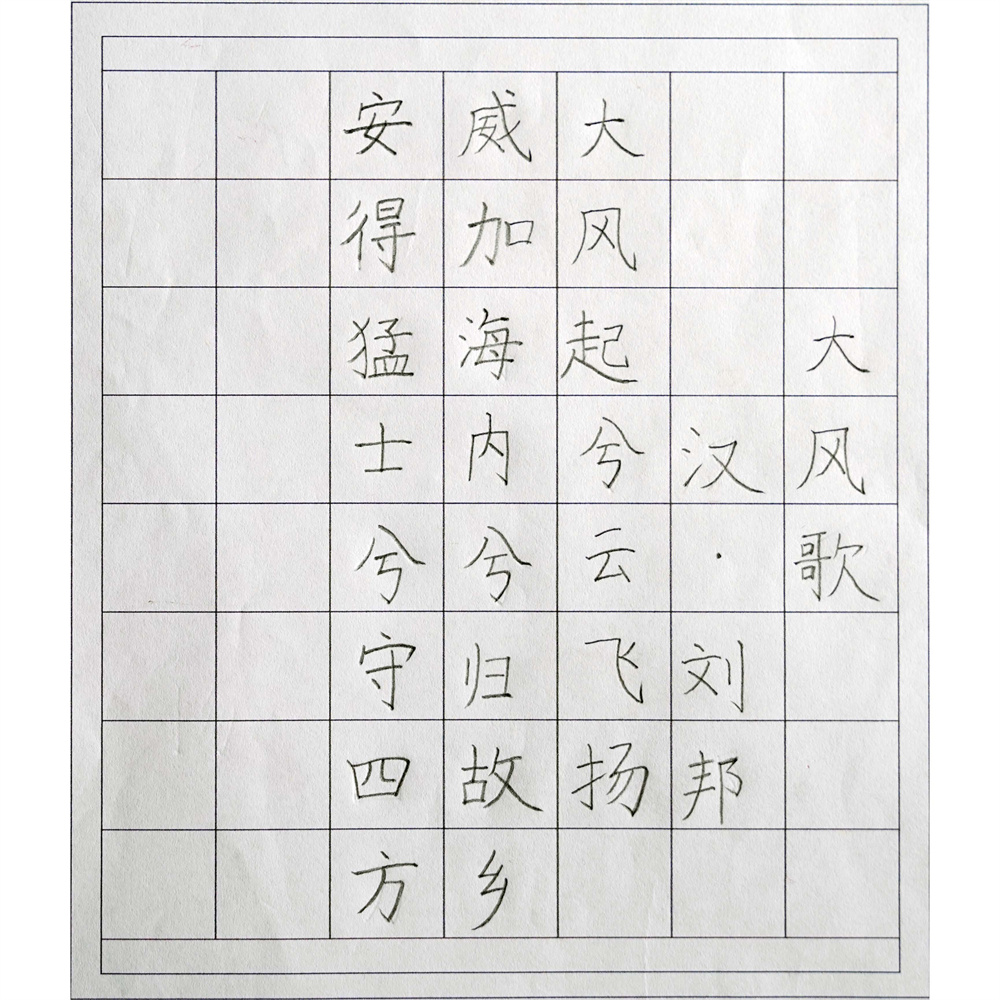 大风歌
汉·刘邦
大风起兮云飞扬
威加海内兮归故乡
安得猛士兮守四方